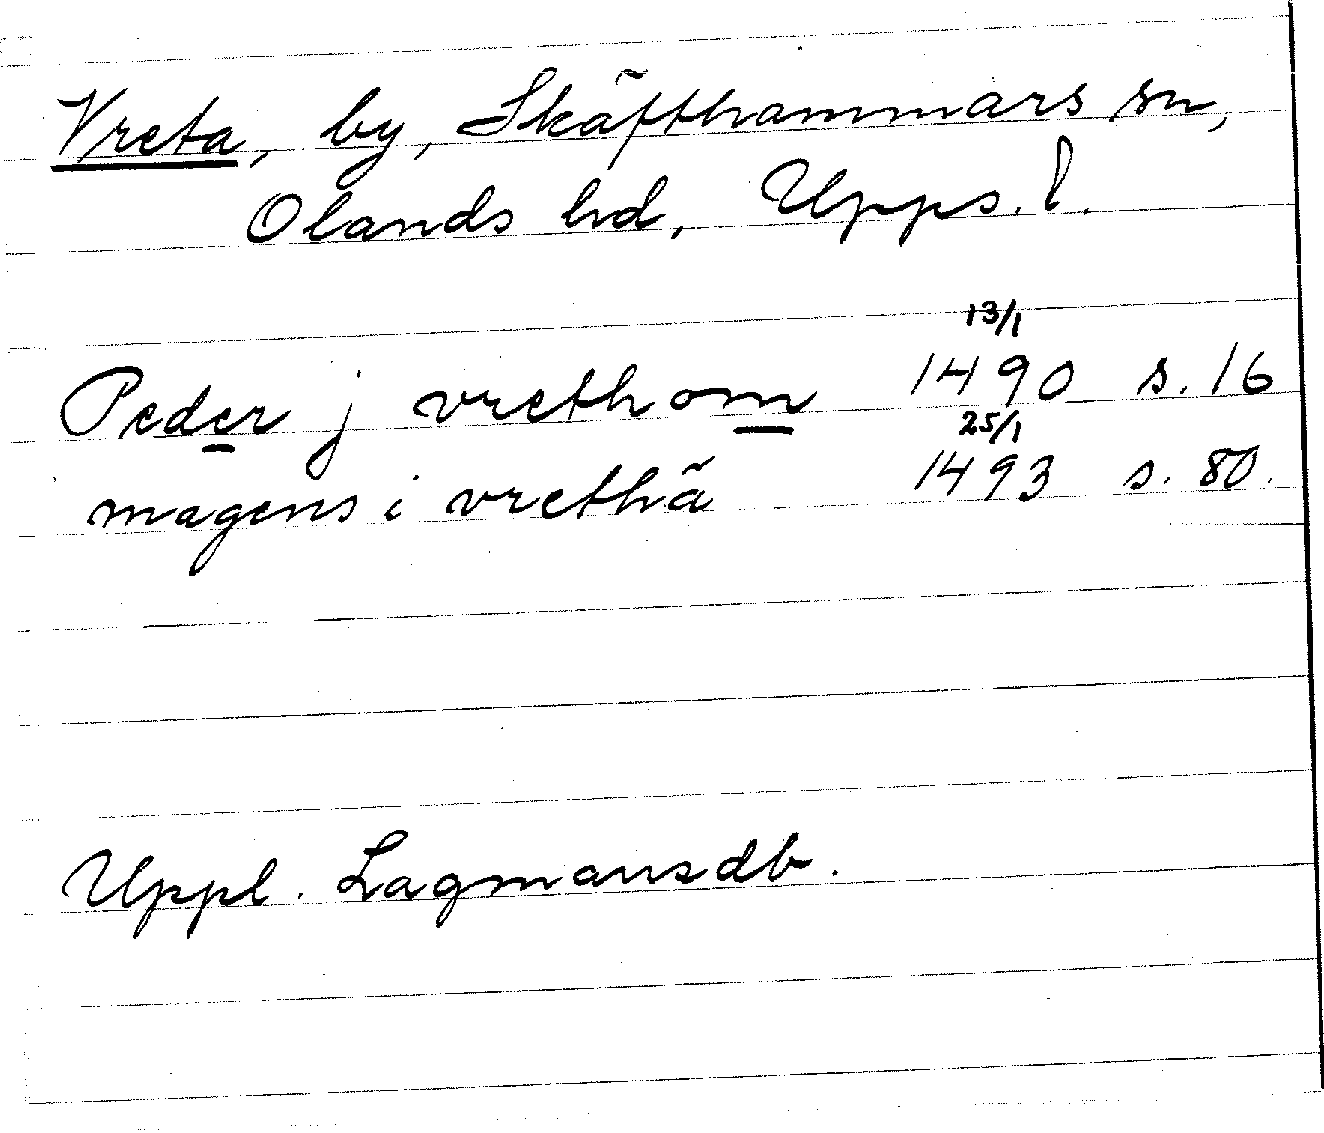 Vreta, by, Skäfthammars sn,
Olands hd, Upps. l.
13/1
Peder j vrethom 1490 s. 16
25/1
magens i vrethã 1493 s. 80.
Uppl. Lagmansdb.